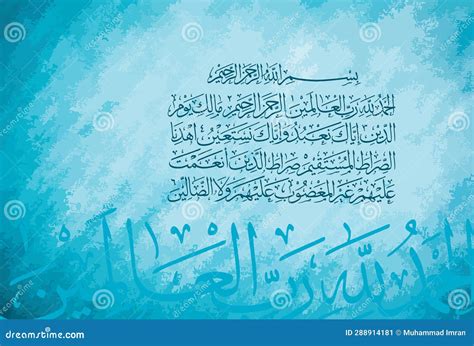 بسم الله الرحمن الرحيم
الحمد لله رب العالمين الرحمن الرحيم مالك يوم
الدين إياك نعبد وإياك نستعين اهدنا
الصراط المستقيم صراط الذين أنعمت
عليهم غير المغضوب عليهم ولا الضالين
الحمد لله رب العالمين
dreamstime
dreamstime.com
ID 288914181 © Muhammad Imran